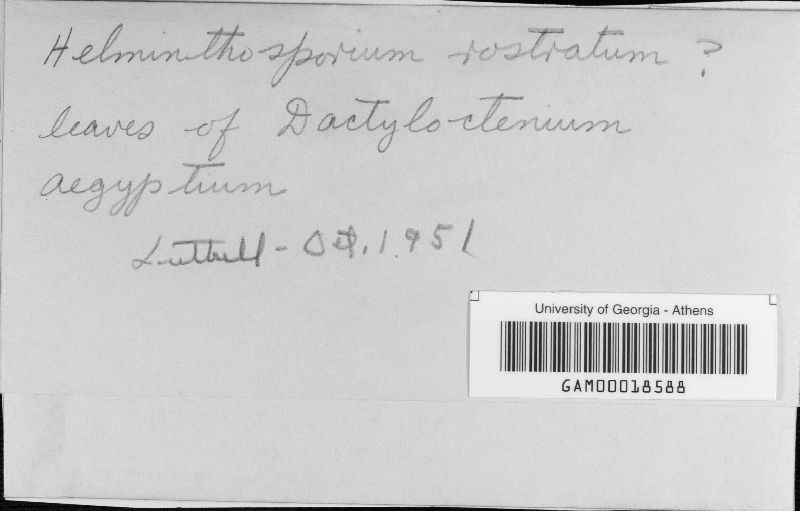 Helminthosporium rostratum ?
leaves of Dactyloctenium
aegyptium
Luttrell - Oct. 1951
University of Georgia - Athens
GAM00018588